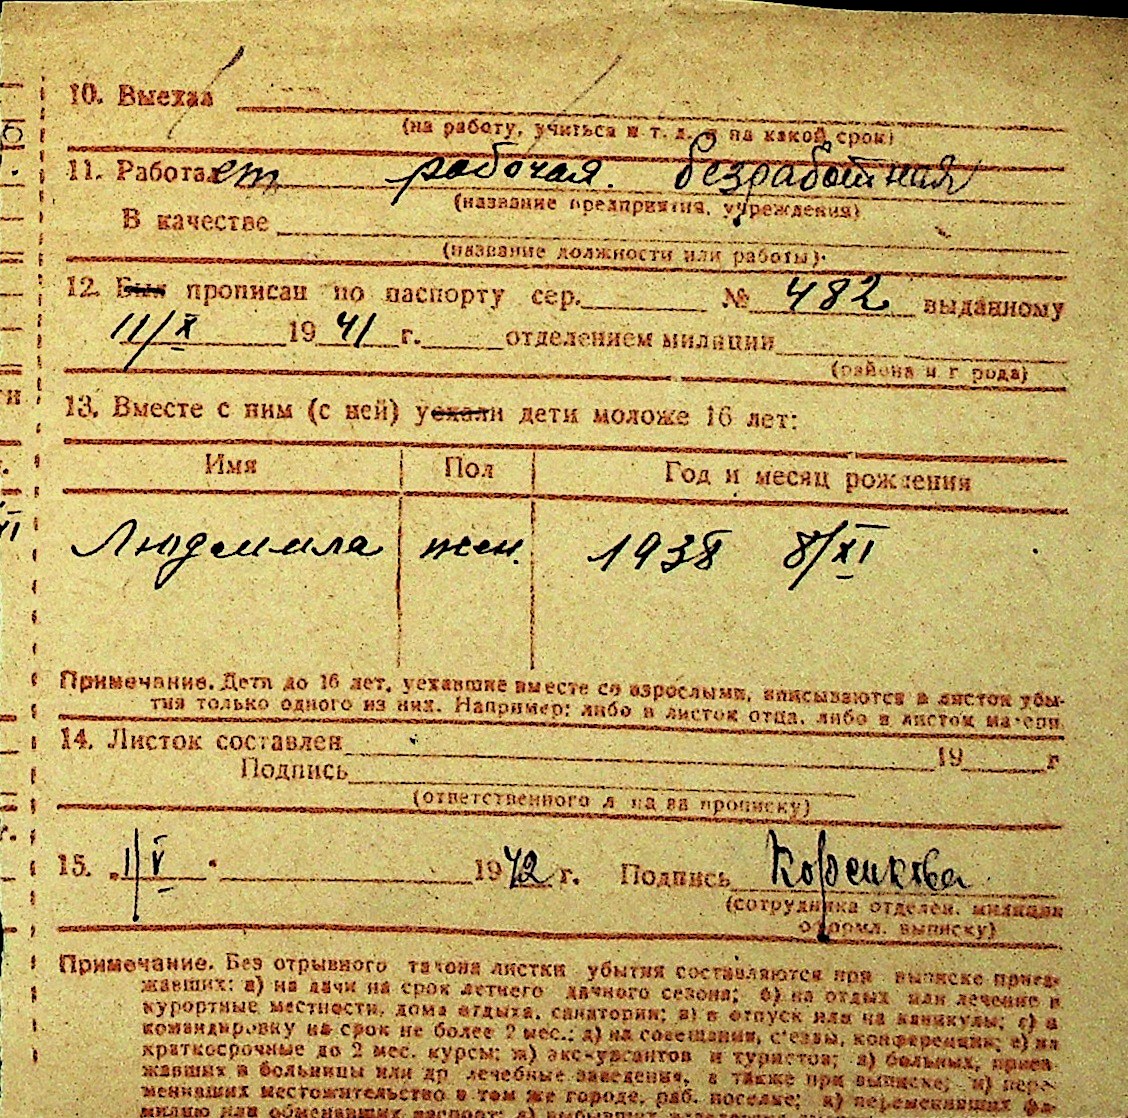 10. Выехал
(на работу, учиться и т. д. и на какой срок)
11. Работает рабочая. безработная
(название предприятия, учреждения)
В качестве
(название должности или работы).
12. Был прописан по паспорту сер. № 482 выданному
11/X 1941 г. отделением милиции
(района и города)
13. Вместе с ним (с ней) уехали дети моложе 16 лет:
Имя Пол Год и месяц рождения
Людмила жен. 1938 8/XI
Примечание. Дети до 16 лет, уехавшие вместе со взрослыми, вписываются в листок убы-
тия только одного из них. Например: либо в листок отца, либо в листок матери.
14. Листок составлен 19 г
Подпись
(ответственного л на за прописку)
15. 1/V 1942 г. Подпись
(сотрудника отделен. милиции
оформл. выписку)
Примечание. Без отрывного талона листки убытия составляются при выписке приез-
жавших: а) на дачи на срок летнего дачного сезона; б) на отдых или лечение в
курортные местности, дома отдыха, санатории; в) в отпуск или на каникулы; г) в
командировку на срок не более 2 мес.; д) на совещания, съезды, конференции; е) на
краткосрочные до 2 мес. курсы; ж) экскурсантов и туристов; з) больных, приез-
жавших в больницы или др лечебные заведения, а также при выписке; и) пере-
менивших местожительство в том же городе, раб. поселке; к) переменивших фа-
милию или обменявших паспорт; л)